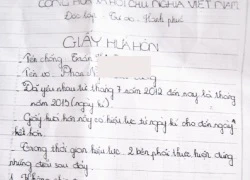 CỘNG HÒA XÃ HỘI CHỦ NGHĨA VIỆT NAM
Độc lập - Tự do - Hạnh phúc
GIẤY HỨA HÔN
- Tên chồng: Trần
- Tên vợ: Phan
- Đã yêu nhau từ tháng 7 năm 2012 đến nay là tháng
năm 2015 (ngày kí)
- Giấy hứa hôn này có hiệu lực từ ngày kí cho đến ngày
kết hôn.
- Trong thời gian hiệu lực 2 bên phải thực hiện đúng
những điều sau đây.